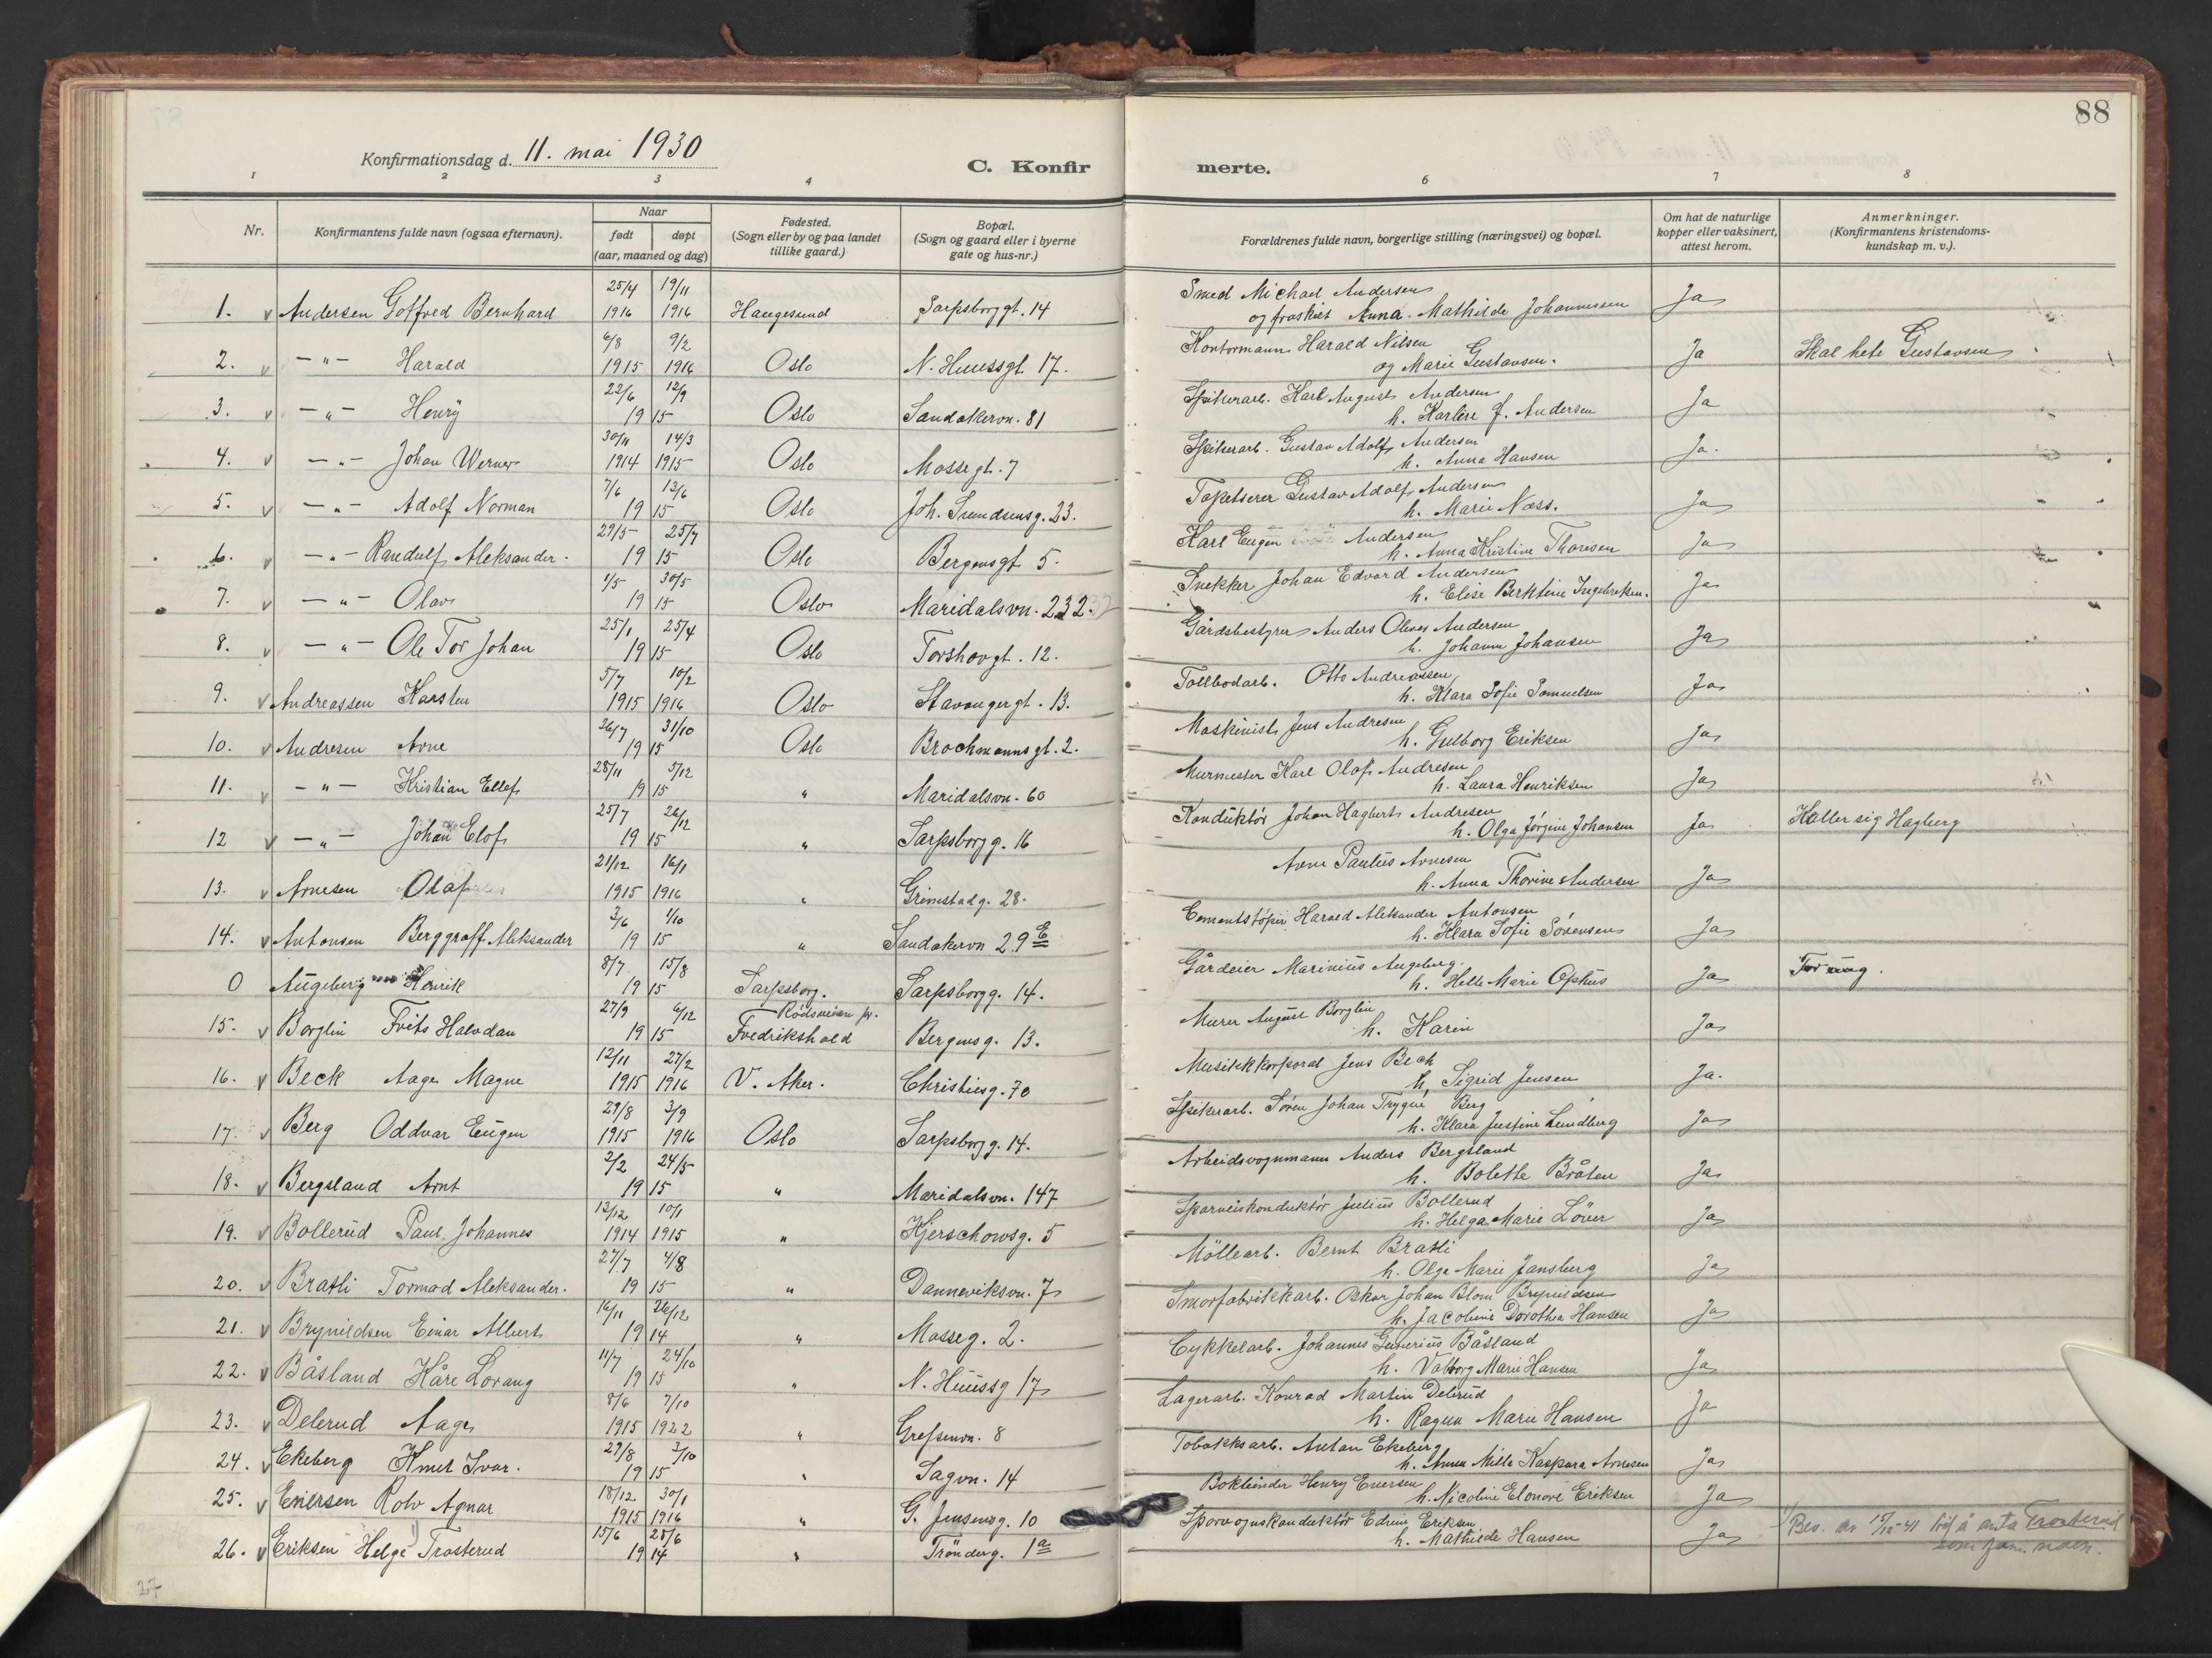 88
Konfirmationsdag d. 11. mai 1930
C. Konfirmerte.
1 2 3 4 6 7 8
Nr. Konfirmantens fulde navn (ogsaa efternavn). Naar født døpt (aar, maaned og dag) Fødested. (Sogn eller by og paa landet tillike gaard.) Bopæl. (Sogn og gaard eller i byerne gate og hus-nr.) Forældrenes fulde navn, borgerlige stilling (næringsvei) og bopæl. Om hat de naturlige kopper eller vaksinert, attest herom. Anmerkninger. (Konfirmantens kristendoms-kundskap m. v.).
1. v Andersen Gotfred Bernhard 25/4 1916 19/11 1916 Haugesund Sarpsborggt. 14 Smed Michael Andersen og fraskilt Anna Mathilde Johannessen Ja
2. v -"- Harald 6/8 1915 9/2 1916 Oslo N. Huusgt. 17. Kontormann Harald Nilsen og Marie Gustavsen. Ja Skal hete Gustavsen
3. v -"- Henry 22/6 12/9 1915 Oslo Sandakervn. 81 Spikerarb. Karl August Andersen h. Karline J. Andersen Ja
4. v -"- Johan Werner 30/11 1914 14/3 1915 Oslo Mossegt. 7 Spikerarb. Gustav Adolf Andersen h. Anna Hansen Ja.
5. v -"- Adolf Norman 7/6 13/6 1915 Oslo Joh. Svendsensg. 23. Tapetserer Gustav Adolf Andersen h. Marie Næss. Ja
6. v -"- Randulf Aleksander. 29/5 25/7 1915 Oslo Bergensgt. 5. Karl Eugen Andersen h. Anna Kristine Thoresen Ja
7. v -"- Olav 1/5 30/5 1915 Oslo Maridalsvn. 232 Snekker Johan Edvard Andersen h. Elise Berntine Ingebretsen. Ja
8. v -"- Ole Tor Johan 25/1 25/4 1915 Oslo Torshovgt. 12. Gårdsbestyrer Anders Olaves Andersen h. Johanne Johansen Ja
9. v Andreassen Karsten 5/7 1915 10/2 1916 Oslo Stavangergt. 13. Tollbodarb. Otto Andreassen h. Klara Sofie Samuelsen Ja
10. v Andresen Arne 26/7 31/10 1915 Oslo Brochmannsgt. 2. Maskinist Jens Andresen h. Gulborg Eriksen Ja
11. v -"- Kristian Ellef 28/11 5/12 1915 " Maridalsvn. 60 Murmester Karl Olaf Andresen h. Laura Henriksen Ja
12 v -"- Johan Elof 25/7 26/12 1915 " Sarpsborgg. 16 Konduktør Johan Hagbert Andresen h. Olga Jørgine Johansen Ja Kaller sig Hagberg
13. v Arnesen Olaf 21/12 1915 16/1 1916 " Grimstadg. 28. Arne Paulus Arnesen h. Anna Thorine Andersen Ja
14. v Antonsen Berggraff Aleksander 3/6 1/10 1915 " Sandakervn 29 E Cementstøper Harald Aleksander Antonsen h. Klara Sofie Sørensen Ja
0 Augeberg Henrik 8/7 15/8 1915 Sarpsborg. Sarpsborgg. 14. Gårdeier Marinius Augeberg. h. Helle Marie Ophus Ja For ung.
15. v Borglin Frits Halvdan 27/9 6/12 1915 Rødsveien pr. Fredrikshald Bergensg. 13. Murer August Borglin h. Karin Ja
16. v Beck Aage Magne 12/11 1915 27/2 1916 V. Aker. Christiesg. 70 Musikkkorporal Jens Beck h. Sigrid Jensen Ja.
17. v Berg Oddvar Eugen 29/8 1915 3/9 1916 Oslo Sarpsborgg. 14. Spikerarb. Søren Johan Trygve Berg h. Klara Justine Lundberg Ja
18. v Bergsland Arnt 2/2 24/5 1915 " Maridalsvn. 147 Arbeidsvognmann Anders Bergsland h. Bolette Bråten Ja
19. v Bollerud Paul Johannes 13/12 1914 10/1 1915 " Kjerschowsg. 5 Sporveiskonduktør Julius Bollerud h. Helga Marie Löver Ja
20. v Bratli Tormod Aleksander. 27/7 4/8 1915 " Danneviksvn. 7 Møllearb. Bernt Bratli h. Olga Marie Jansberg Ja
21. v Brynildsen Einar Albert 16/11 26/12 1914 " Mosseg. 2. Smørfabrikkarb. Oskar Johan Blom Brynildsen h. Jacobine Dorothea Hansen Ja
22. v Båsland Kåre Lovang 11/7 24/10 1915 " N. Huusg 17 Cykkelarb. Johannes Gunerius Båsland h. Valborg Marie Hansen Ja
23. v Delerud Aage 8/6 1915 7/10 1922 " Grefsenvn. 8 Lagerarb. Konrad Martin Delerud h. Ragna Marie Hansen Ja
24. v Ekeberg Knut Ivar. 29/8 3/10 1915 " Sagvn. 14 Tobakksarb. Anton Ekeberg h. Anna Milla Kaspara Arnesen Ja
25. v Enersen Rolv Agnar 18/12 1915 30/1 1916 " G. Jensensg. 10 Bokbinder Henry Enersen h. Nicoline Elonore Eriksen Ja
26. v Eriksen Helge Trosterud 15/6 28/6 1914 " Trønderg. 1a Sporvognskonduktør Edvin Eriksen h. Mathilde Hansen Ja 1) Bev. av 15/12-41 til å anta Trosterud som fam. navn.
27